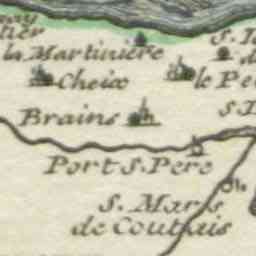 la Martiniere
Cheix
le Pe
Brains
Port S. Pere
S. Mars
de Coutais